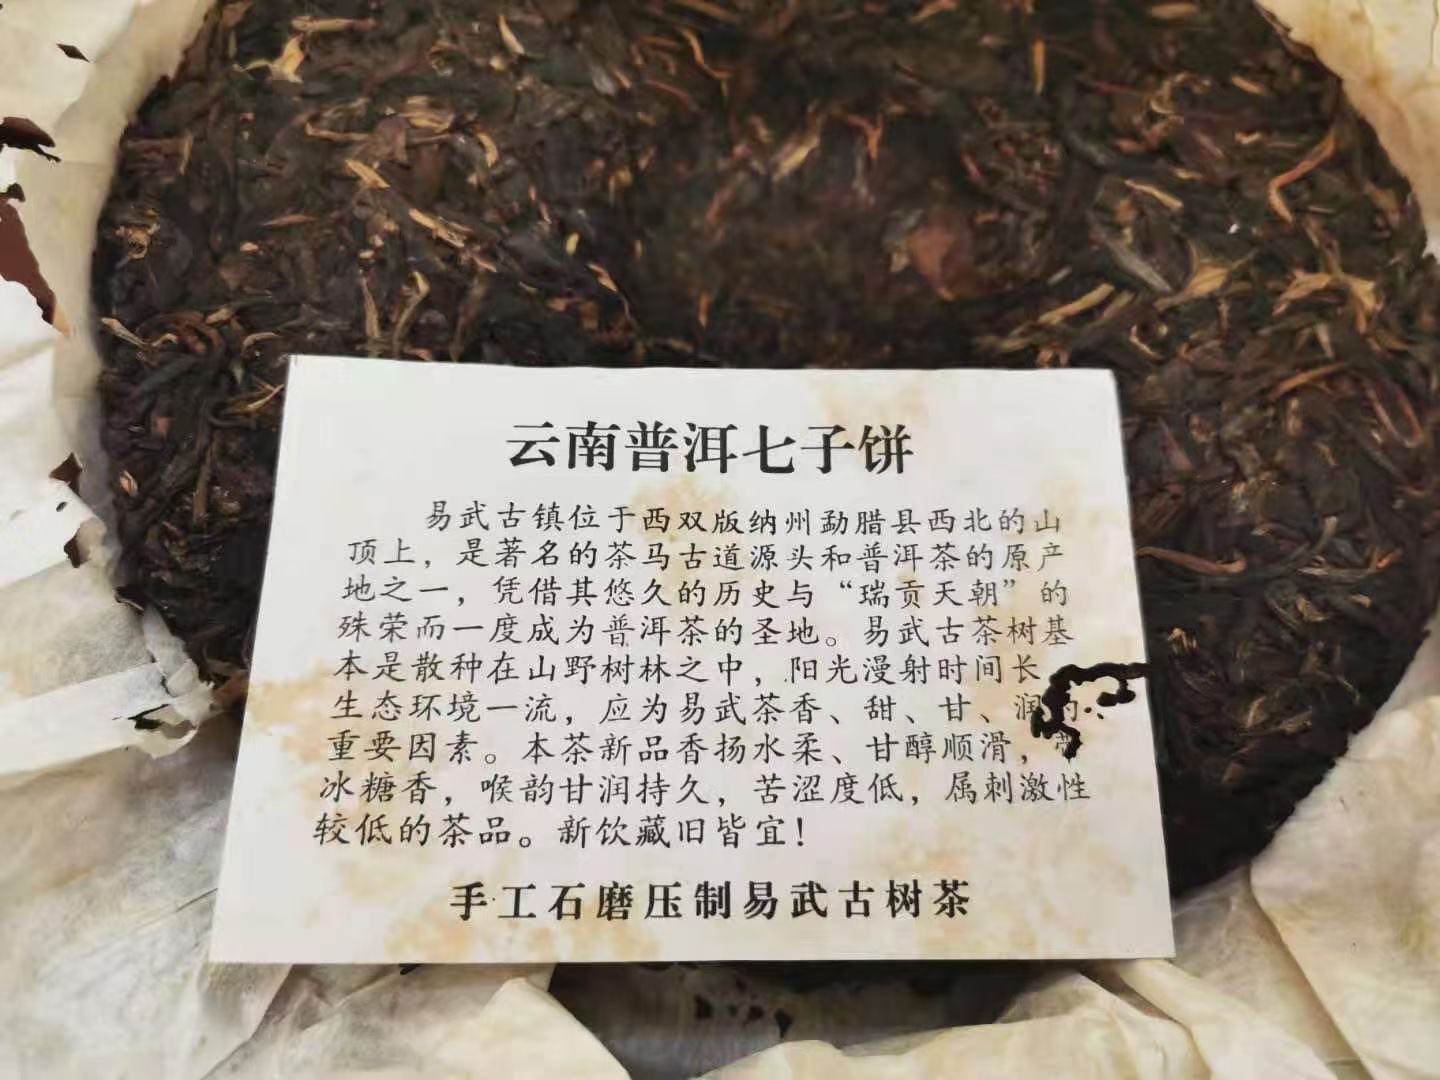 云南普洱七子饼
易武古镇位于西双版纳州勐腊县西北的山
顶上，是著名的茶马古道源头和普洱茶的原产
地之一，凭借其悠久的历史与“瑞贡天朝”的
殊荣而一度成为普洱茶的圣地。易武古茶树基
本是散种在山野树林之中，阳光漫射时间长
生态环境一流，应为易武茶香、甜、甘、润
重要因素。本茶新品香扬水柔、甘醇顺滑，
冰糖香，喉韵甘润持久，苦涩度低，属刺激性
较低的茶品。新饮藏旧皆宜！
手工石磨压制易武古树茶